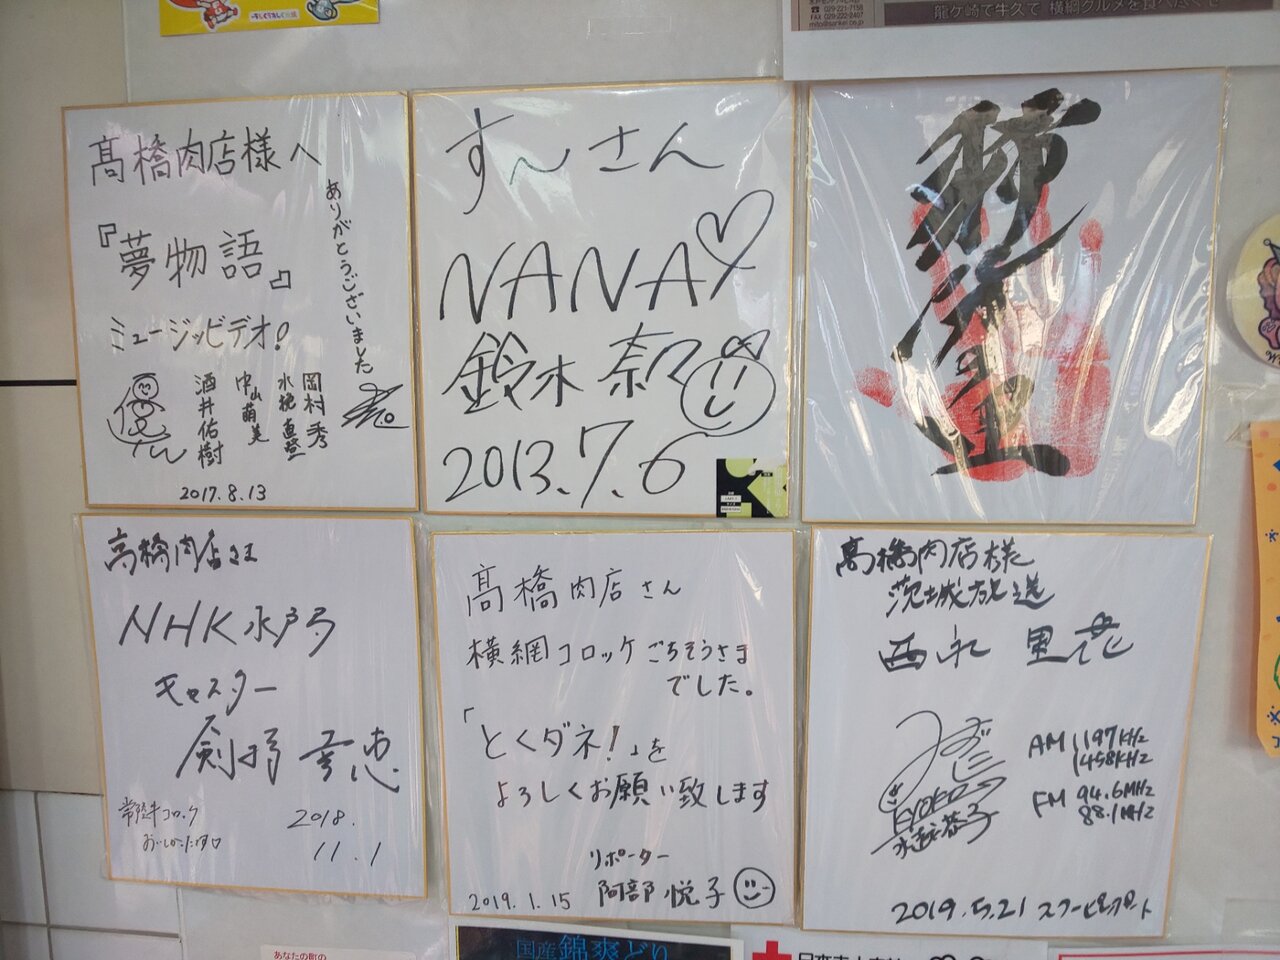 029-221-7158
FAX 029-222-2407
mito@sankei.co.jp
龍ケ崎で牛久で 横綱グルメを食べ尽くせ
髙橋肉店様へ
『夢物語』
ミュージックビデオ!
ありがとうございました
岡村秀
水槐直登
中山萌美
酒井佑樹
2017.8.13
すーさん
NANA
鈴木奈々
2013.7.6
稀勢里
高橋肉店さま
NHK水戸局
キャスター
剣持幸恵
常陸牛コロッケ
おいしかったです
2018.
11.1
髙橋肉店さん
横綱コロッケごちそうさま
でした。
「とくダネ!」を
よろしくお願い致します
リポーター
阿部悦子
2019.1.15
髙橋肉店様
茨城放送
西永 里花
AM 1197KHz
1458KHz
FM 94.6MHz
88.1MHz
水越恭子
2019.5.21 スクーピーレポート
あなたの町の
国産錦爽どり